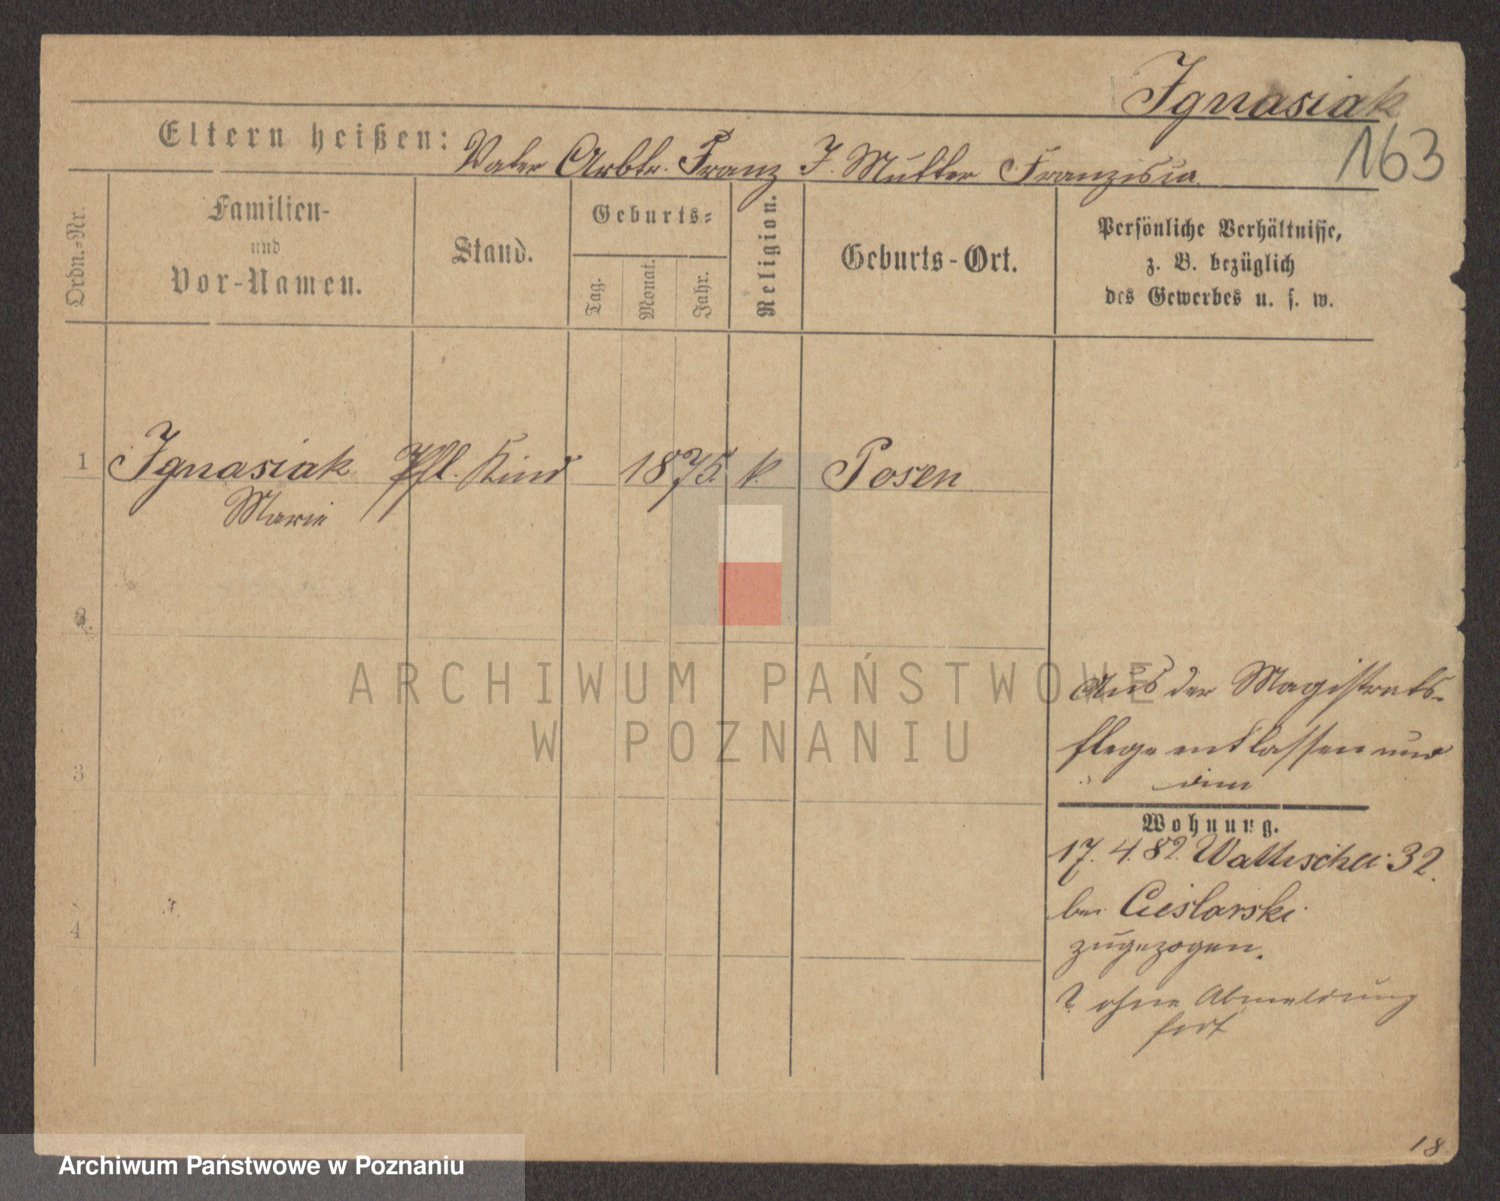 Ignasiak
163
Eltern heißen: Vater Arbtr. Franz I. Mutter Franzisca
Ordn.-Nr.
Familien-
und
Vor-Namen.
Stand.
Geburts-
Tag.
Monat.
Jahr.
Religion.
Geburts-Ort.
Persönliche Verhältnisse,
z. B. bezüglich
des Gewerbes u. s. w.
1 Ignasiak Pfl. Kind 1875 k. Posen
Marie
2
3
4
Aus der Magistrats-
flege entlassen und
Wohnung.
17. 4. 82. Wallischei 32.
bei Cieslarski
zugezogen.
? ohne Abmeldung
fort
18
ARCHIWUM PAŃSTWOWE
W POZNANIU
Archiwum Państwowe w Poznaniu